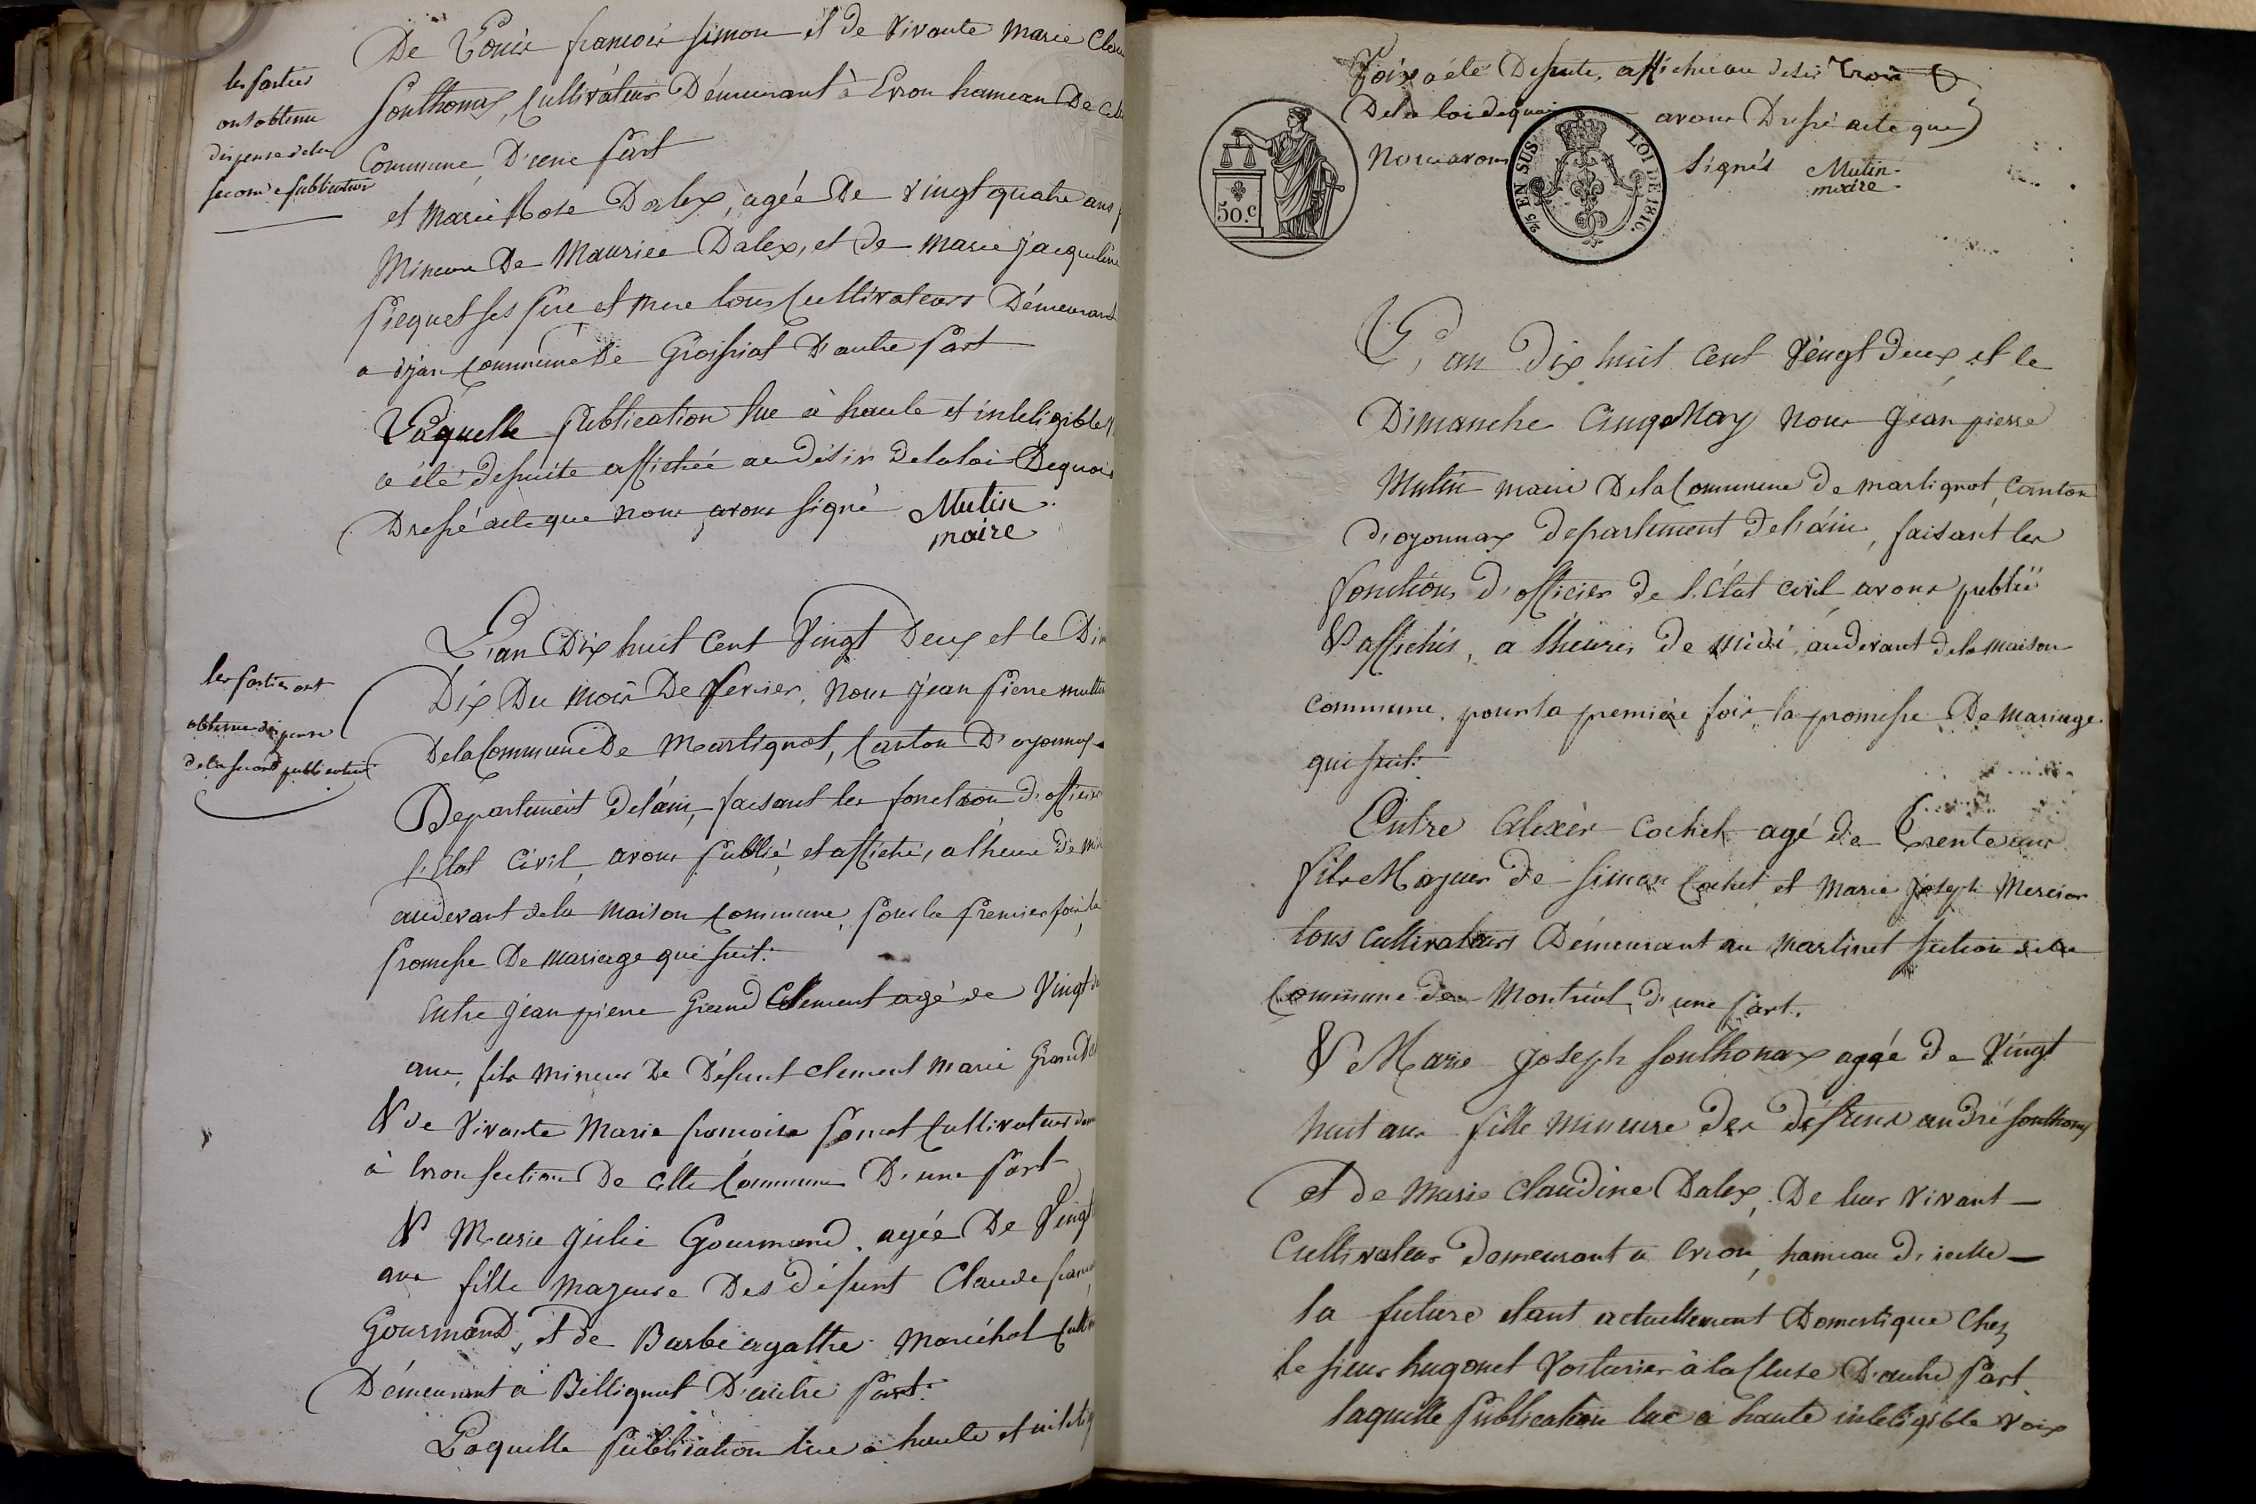 De Louis francois simon et de vivante Marie
Sonthonax, Cultivateurs Démeurant à Evron hameau De
Commune, D'une part
et Marie Rose Dalex, agée De vingt quatre ans
Mineure De Maurice Dalex, et de Marie jacqueline
piequet ses pere et mere tous Cultivateurs Démeurant
a Commune De Groissiat D'autre part
Laquelle publication lue à haute et inteligible
a été desuite affichée au désir de la loi Dequoi
Dressé acte que nous avons signé Mutin
maire
les parties
ont obtenu
dispense de la
seconde publication
L'an Dix huit Cent Vingt Deux et le
Dix Du mois De février, Nous jean pierre
De la Commune De Martignat, Canton D'oyonnax
Departement de l'ain, faisant les fonction d'officier
l'Etat Civil, avons publié, et affiché, a l'heure de
audevant de la Maison Commune, pour la premier fois, la
promesse De Mariage qui suit:
Entre jean pierre Grand Clement agé de Vingt
ans, fils mineur De Défunt Clement Marie
& de Vivante Marie francoise Cultivateurs
à Evron section De cette Commune D'une part
& Marie julie Gourmand, agée De Vingt
ans fille majeure Des défunt Claude
Gourmand, et de Barbe agathe Maréchal
Démeurant à Bellignat D'autre part.
Laquelle publication lue à haute et
les parties ont
obtenu dispense
de la second publication
Voix a été Desuite, affichée au desir
De la loi dequoi avons Dressé acte que
Nous avons Signés Mutin
maire
50.c
2/5 EN SUS. LOI DE 1816.
L'an Dix huit Cent Vingt deux, et le
Dimanche Cinq May Nous jean pierre
Mutin maire De la Commune de Martignat, Canton
d'oyonnax departement de l'ain, faisant les
fonctions d'officier de l'Etat civil, avons publié
& affichés, a l'heure, de Midi, audevant de la Maison
Commune, pour la premiere fois, la promesse De Mariage
qui suit:
Entre Alexis Cochet agé de Trente ans
fils Majeur de Simon Cochet, et Marie Joseph Mercier
tous Cultivateurs Démeurant au Martinet section de la
Commune de Montréal, d'une part.
& Marie Joseph Sonthonax aggé de Vingt
huit ans fille mineure des défunt andré Sonthonax
et de Marie Claudine Dalex, De leur Vivant
Cultivateur Demeurant a Evron, hameau D'icelle
la future étant actuellement Domestique Chez
le sieur hugonet Voiturier à la Cluse D'autre part
laquelle publication lue a haute inteligible voix